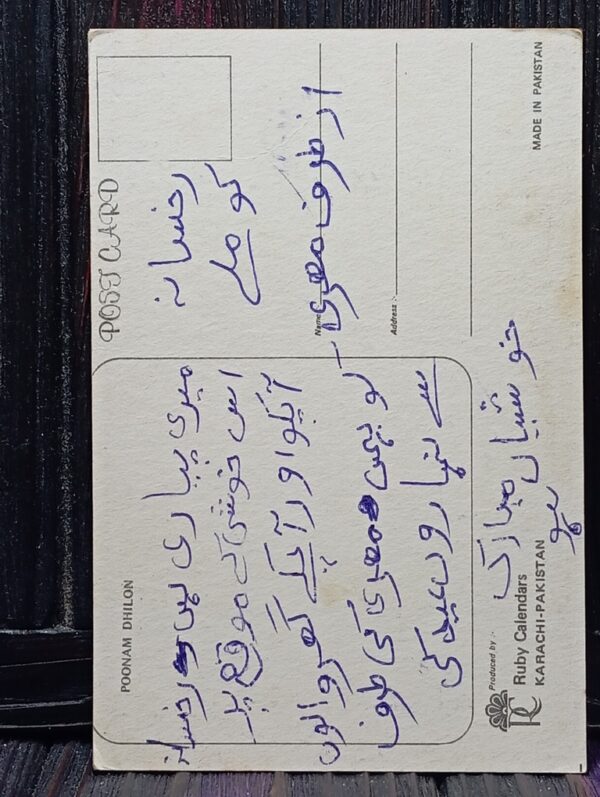 POONAM DHILON
میری پیاری بہن رخسانہ
اس خوشی کے موقع پر
آپکو اور آپکے گھر والوں
کو بہن مصری کی طرف
سے عید کی
خوشیاں مبارک
ہو
Produced by :-
Ruby Calendars
KARACHI-PAKISTAN
POST CARD
رخسانہ
کو ملے
Name
از طرف مصری
Address :-
MADE IN PAKISTAN